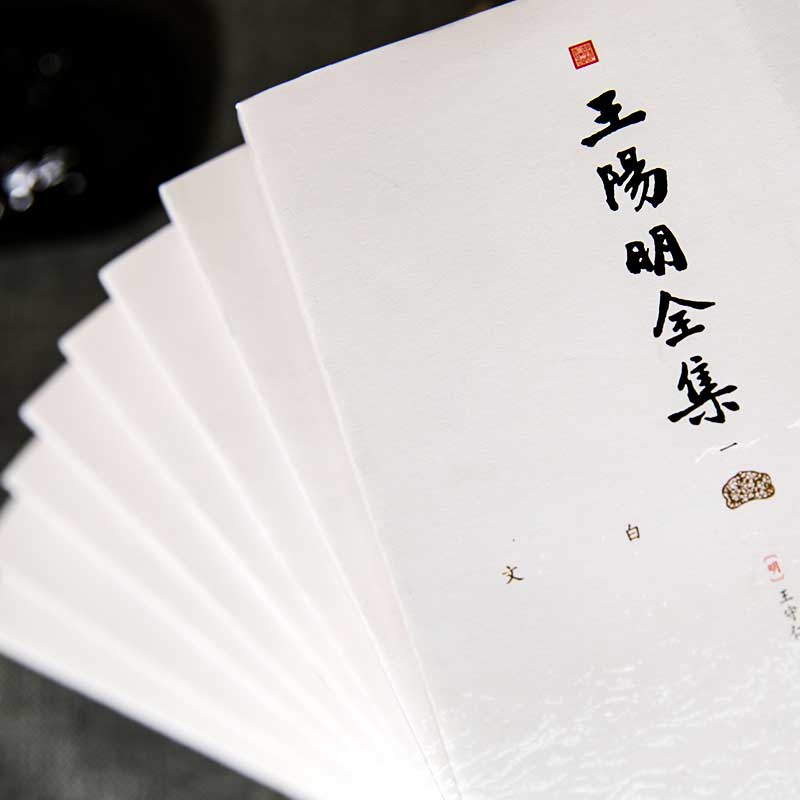 王陽明全集
一
文
白
〔明〕
王守仁